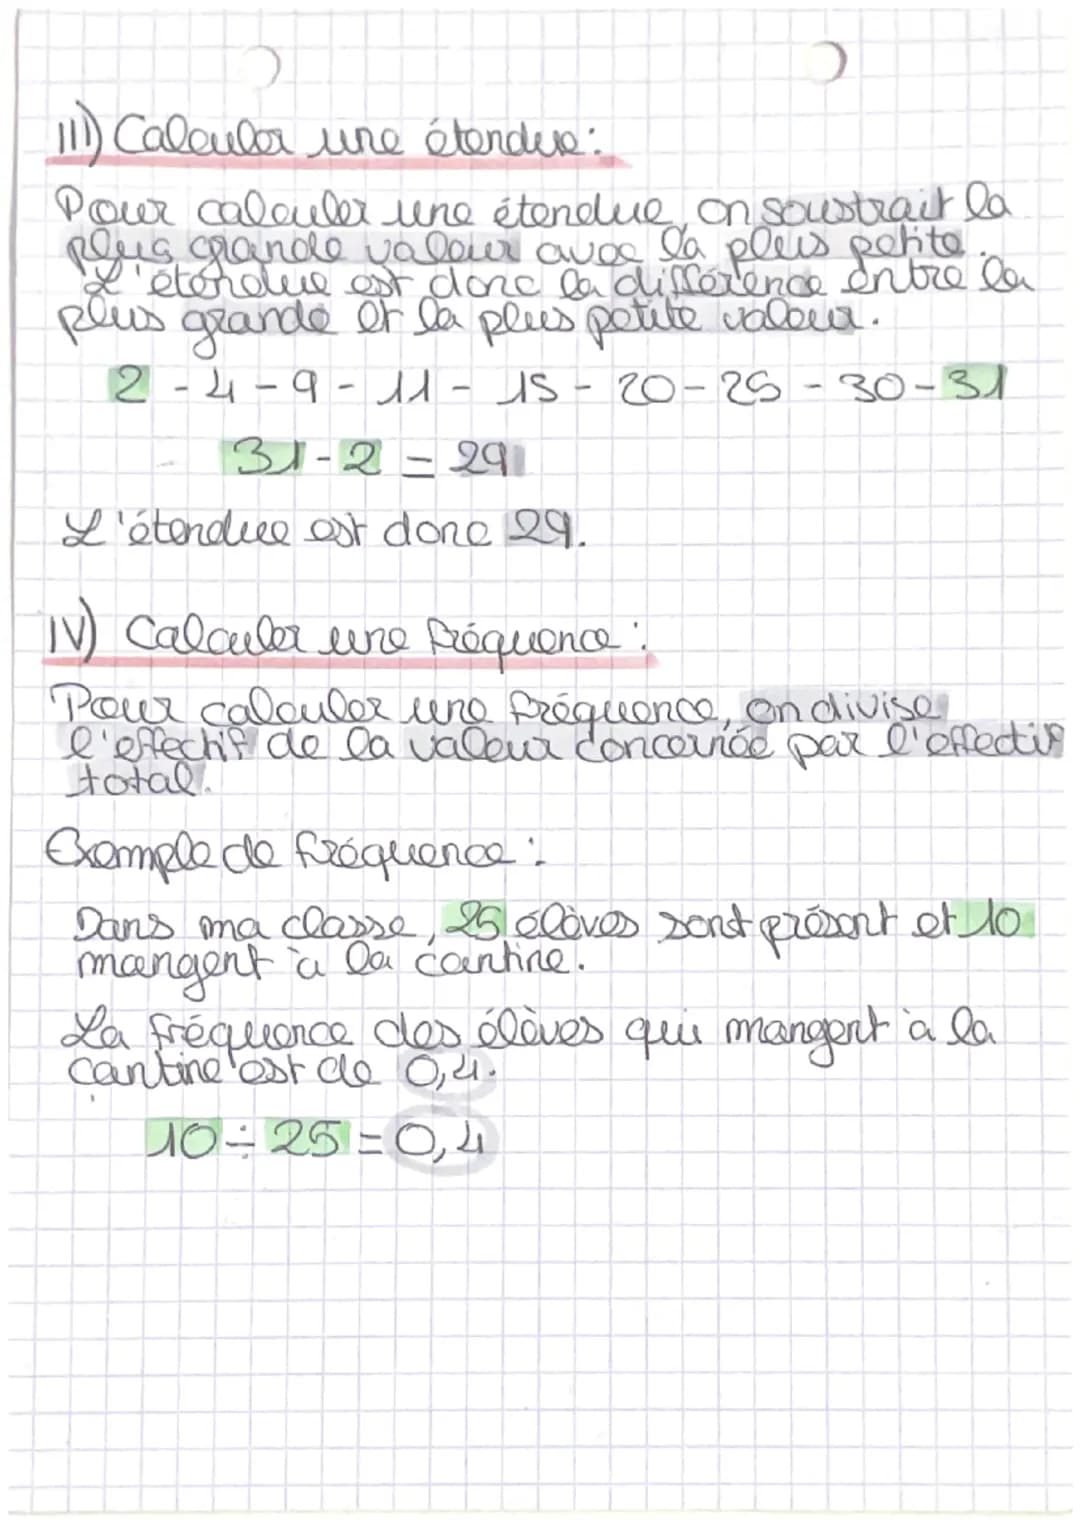 III) Calculer une étendue :
Pour calculer une étendue, on soustrait la
plus grande valeur avec la plus petite.
L'étendue est donc la différence entre la
plus grande et la plus petite valeur.
2 - 4 - 9 - 11 - 15 - 20 - 25 - 30 - 31
31 - 2 = 29
L'étendue est donc 29.
IV) Calculer une fréquence :
Pour calculer une fréquence, on divise
l'effectif de la valeur concernée par l'effectif
total.
Exemple de fréquence :
Dans ma classe, 25 élèves sont présent et 10
mangent à la cantine.
La fréquence des élèves qui mangent à la
cantine est de 0,4.
10 ÷ 25 = 0,4